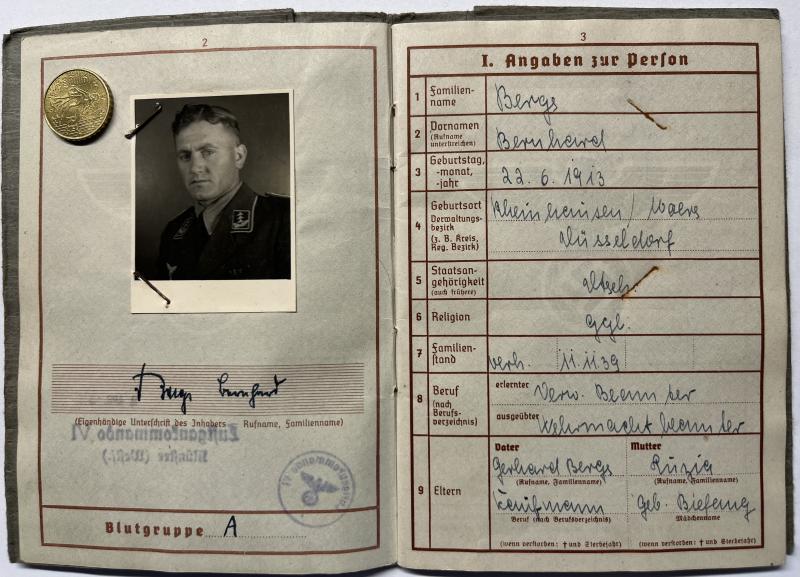 2
Bergs Bernhard
(Eigenhändige Unterschrift des Inhabers Rufname, Familienname)
Luftgaukommando VI
Münster (Westf.)
Blutgruppe A
3
I. Angaben zur Person
1 Familienname Bergs
2 Vornamen (Rufname unterstreichen) Bernhard
3 Geburtstag, -monat, -jahr 22.6.1913
4 Geburtsort Verwaltungsbezirk (z. B. Kreis, Reg. Bezirk) Rheinhausen / Moers
Düsseldorf
5 Staatsangehörigkeit (auch frühere) Dtsch.
6 Religion ggl.
7 Familienstand verh. 11.11.39
8 Beruf (nach Berufsverzeichnis) erlernter Verw. Beamter
ausgeübter Wehrmachtbeamter
9 Eltern
Vater Mutter
Gerhard Bergs
(Rufname, Familienname) (Rufname, Familienname)
Kaufmann geb. Biefang
Beruf (nach Berufsverzeichnis) Mädchenname
(wenn verstorben: † und Sterbejahr) (wenn verstorben: † und Sterbejahr)